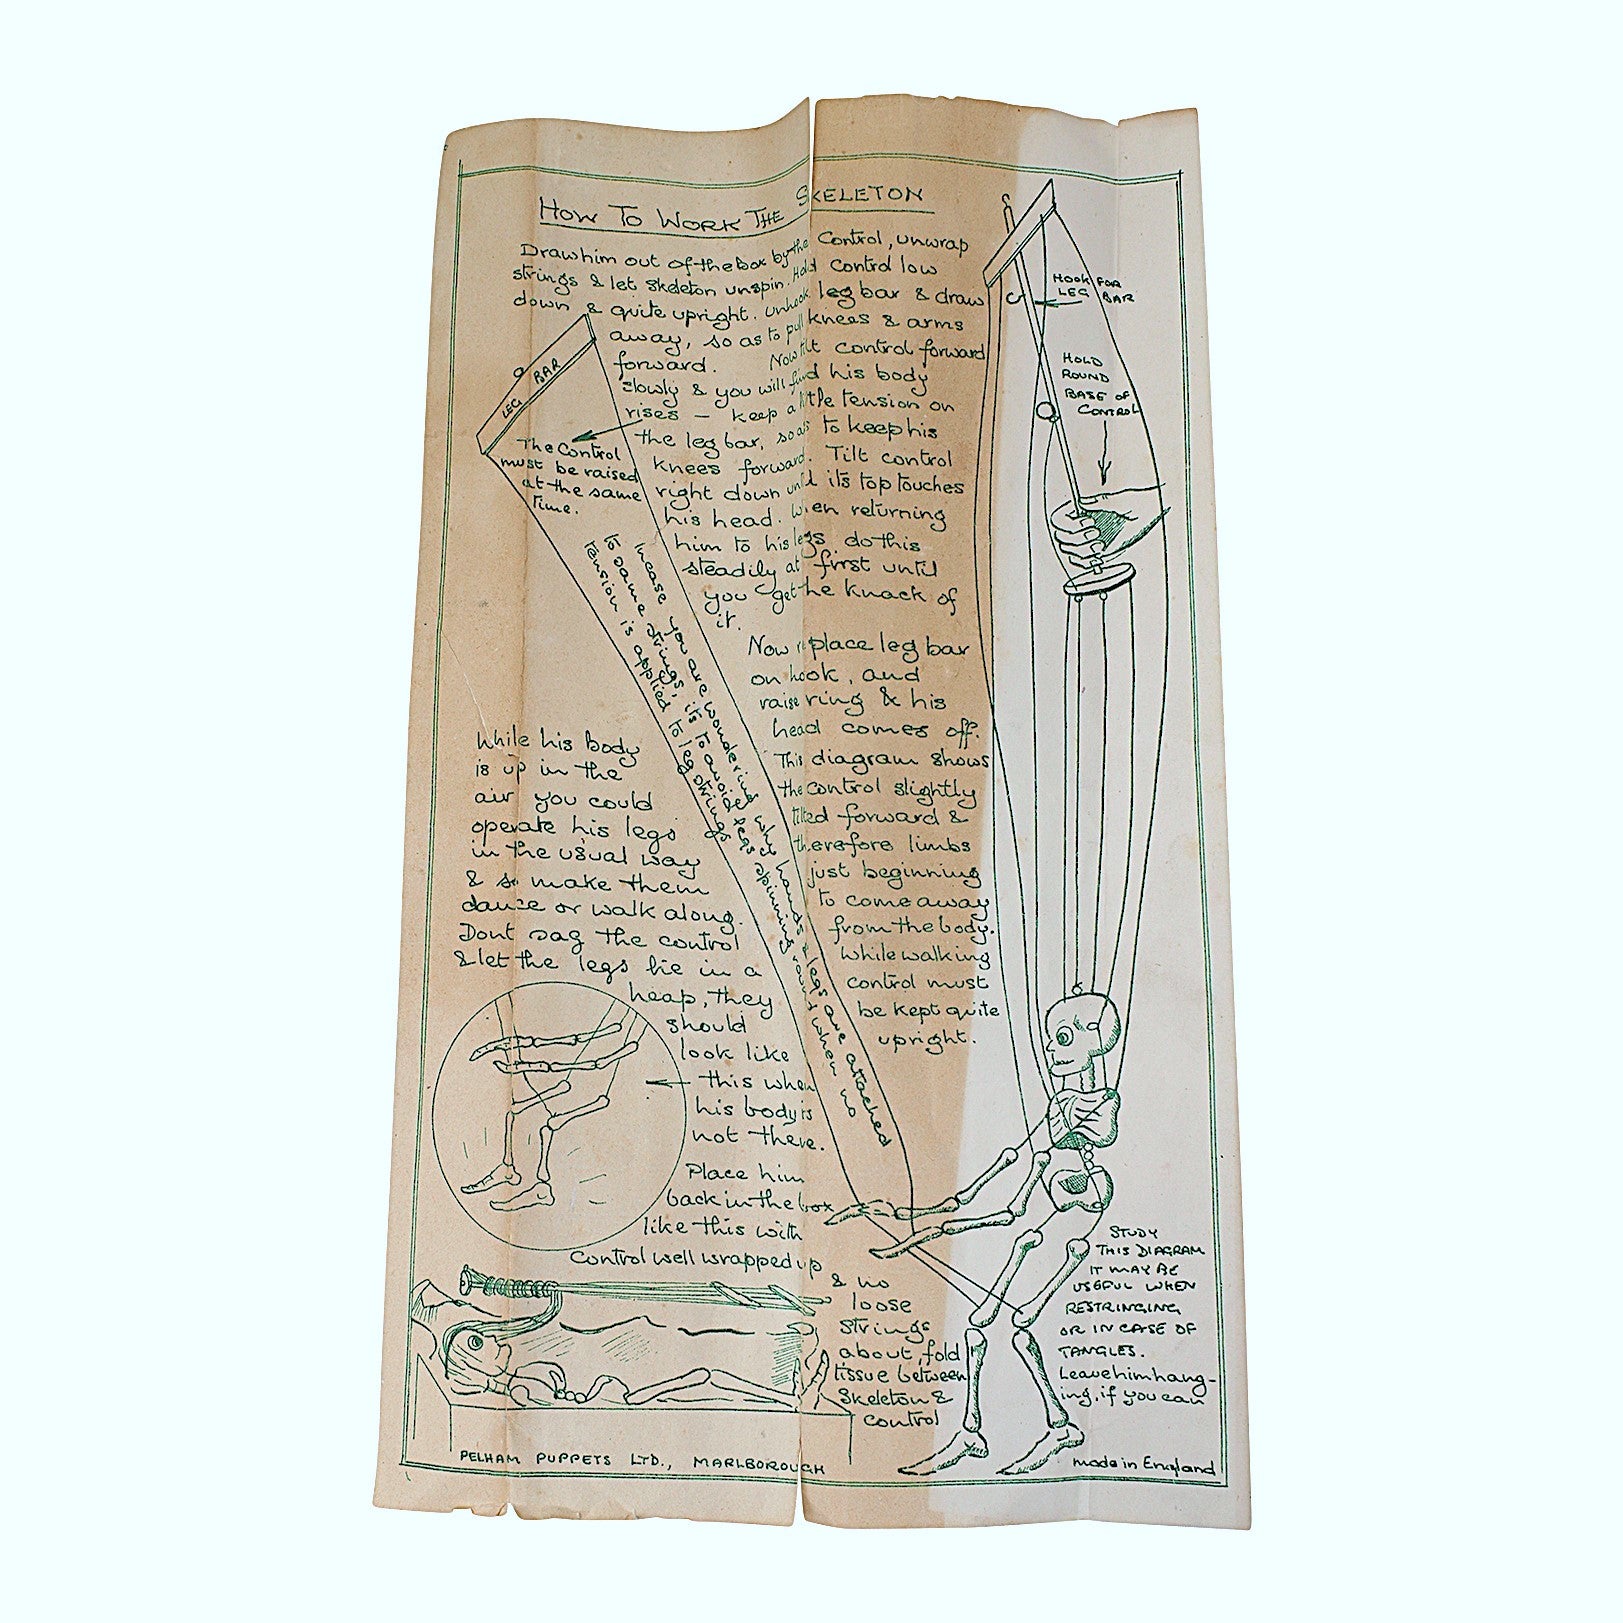 HOW TO WORK THE SKELETON
Draw him out of the box by the Control, unwrap
strings & let skeleton unspin. Hold control low
down & quite upright. Unhook leg bar & draw
away, so as to pull knees & arms
forward. Now tilt control forward
slowly & you will find his body
rises – keep a little tension on
the leg bar, so as to keep his
knees forward. Tilt control
right down until its top touches
his head. When returning
him to his legs do this
steadily at first until
you get the knack of
it.
Now replace leg bar
on hook, and
raise ring & his
head comes off.
This diagram shows
the control slightly
tilted forward &
therefore limbs
just beginning
to come away
from the body.
While walking
control must
be kept quite
upright.
LEG BAR
The Control
must be raised
at the same
time.
In case you are wondering why hands & legs are attached
to same strings, it's to avoid legs spinning round when no
tension is applied to leg strings
While his body
is up in the
air you could
operate his legs
in the usual way
& so make them
dance or walk along.
Dont sag the control
& let the legs lie in a
heap, they
should
look like
this when
his body is
not there.
Place him
back in the box
like this with
Control well wrapped up
& no
loose
strings
about, fold
tissue between
Skeleton &
control
HOOK FOR
LEG BAR
HOLD
ROUND
BASE OF
CONTROL
STUDY
THIS DIAGRAM
IT MAY BE
USEFUL WHEN
RESTRINGING
OR IN CASE OF
TANGLES.
Leave him hang-
ing, if you can
PELHAM PUPPETS LTD., MARLBOROUGH
made in England